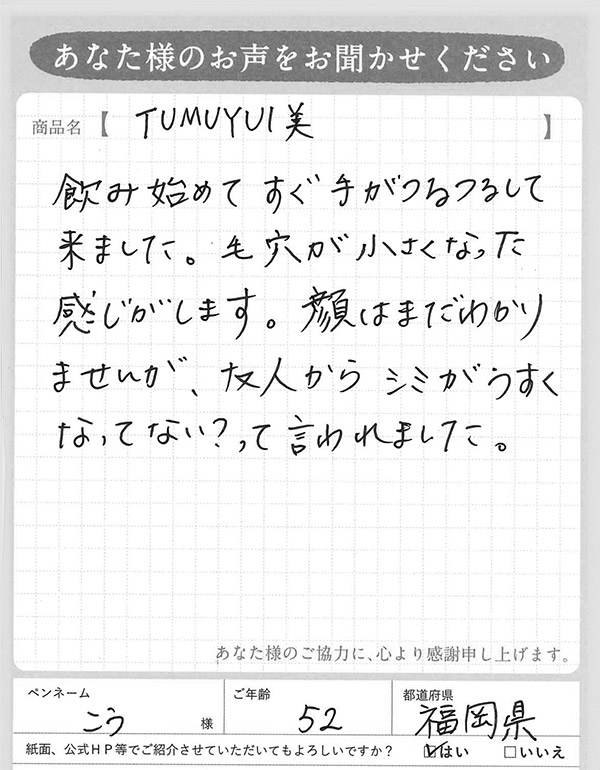 あなた様のお声をお聞かせください
商品名【 TUMUYUI美 】
飲み始めて すぐ手がつるつるして
来ました。毛穴が小さくなった
感じがします。顔はまだわかり
ませんが、友人から シミがうすく
なってない?って言われました。
あなた様のご協力に、心より感謝申し上げます。
ペンネーム ご年齢 都道府県
こう 様 52 福岡県
紙面、公式HP等でご紹介させていただいてもよろしいですか? ☑はい □いいえ